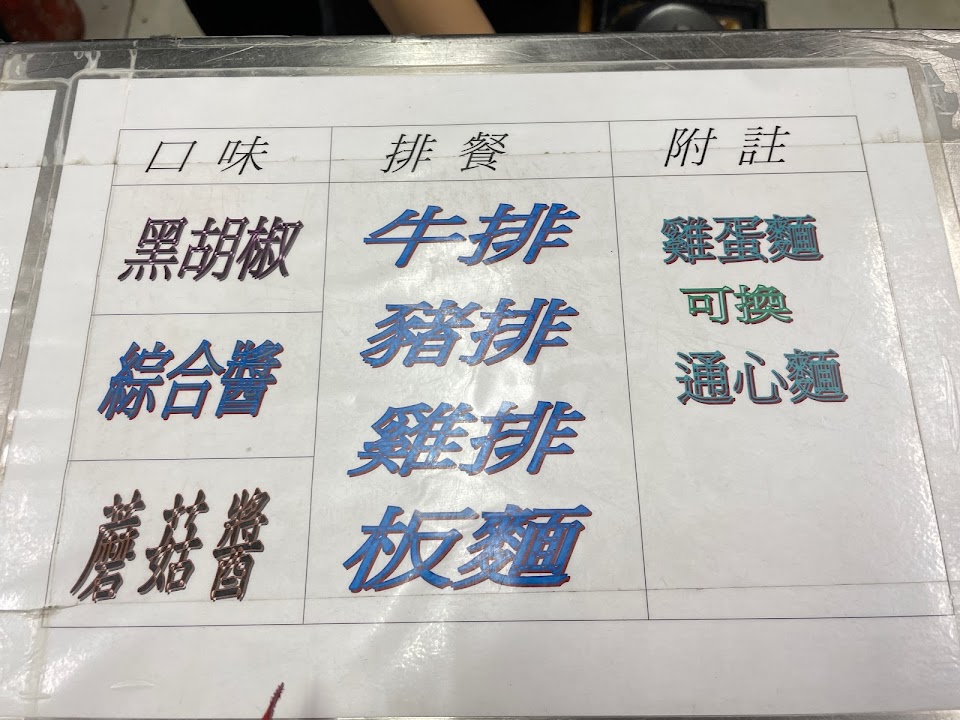 口味 排餐 附註
黑胡椒
綜合醬
蘑菇醬
牛排
豬排
雞排
板麵
雞蛋麵
可換
通心麵